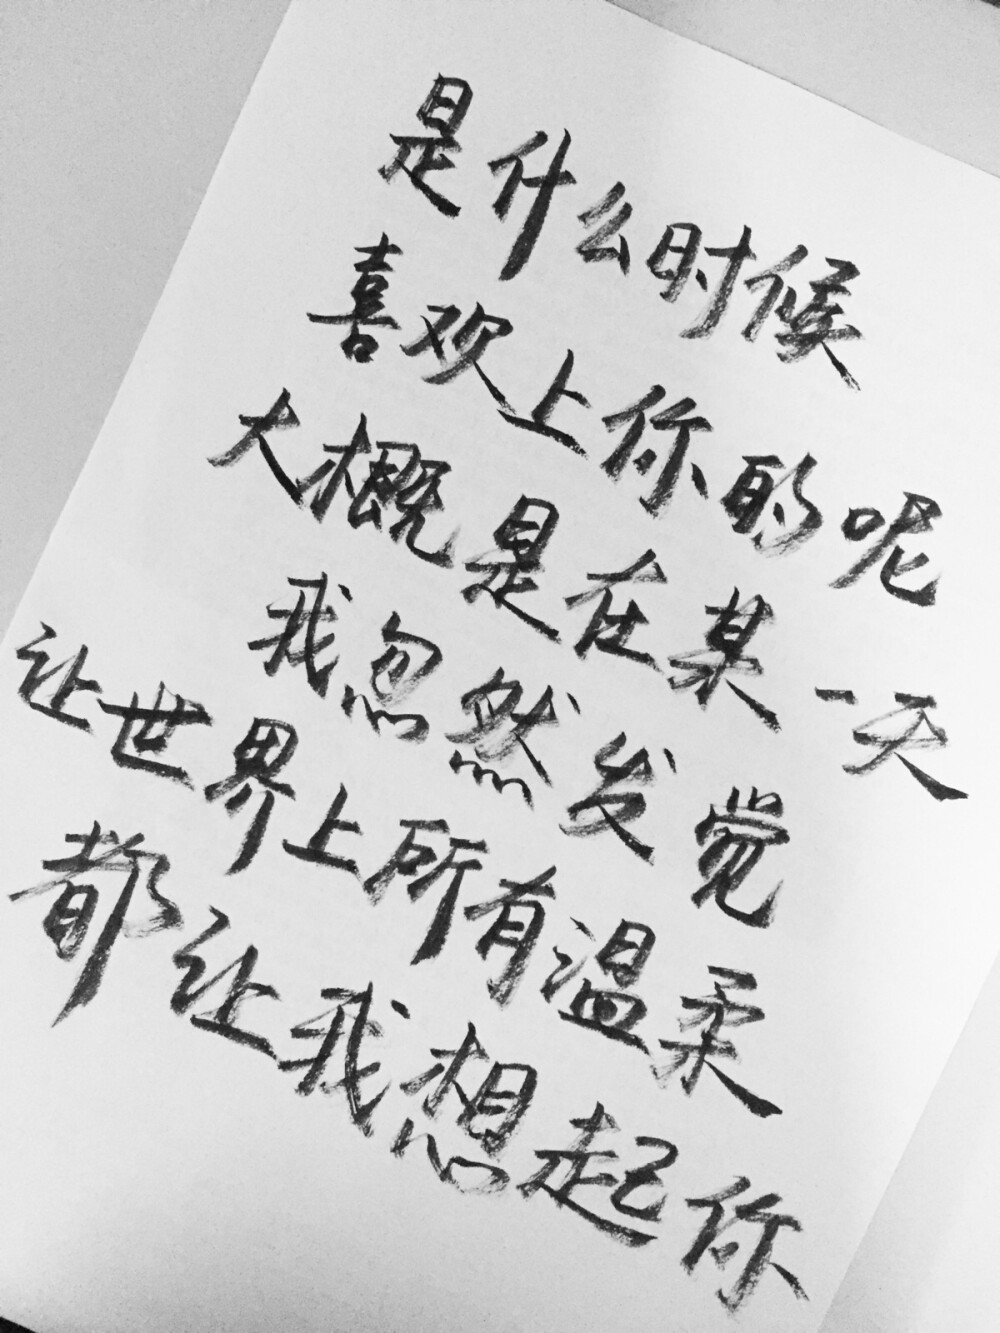 是什么时候
喜欢上你的呢
大概是在某一天
我忽然发觉
让世界上所有温柔
都让我想起你